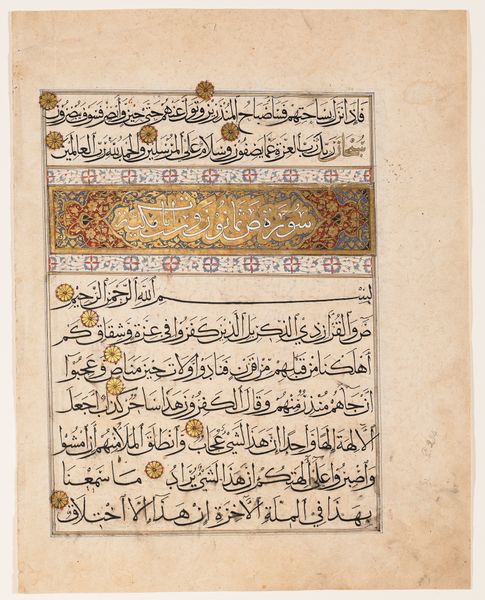 فاذا نزل بساحتهم فسا صباح المنذرين وتول عنهم حتى حين وابصر فسوف يبصرون
سبحان ربك رب العزة عما يصفون وسلام على المرسلين والحمد لله رب العالمين
سورة ص ثمانون مكية
بسم الله الرحمن الرحيم
ص والقران ذي الذكر بل الذين كفروا في عزة وشقاق كم
اهلكنا من قبلهم من قرن فنادوا ولات حين مناص وعجبوا
ان جاهم منذر منهم وقال الكفرون هذا ساحر كذاب اجعل
الالهة الها واحدا ان هذا لشي عجاب وانطلق الملا منهم ان امشوا
واصبروا على الهتكم ان هذا لشي يراد ما سمعنا
بهذا في الملة الاخرة ان هذا الا اختلاق